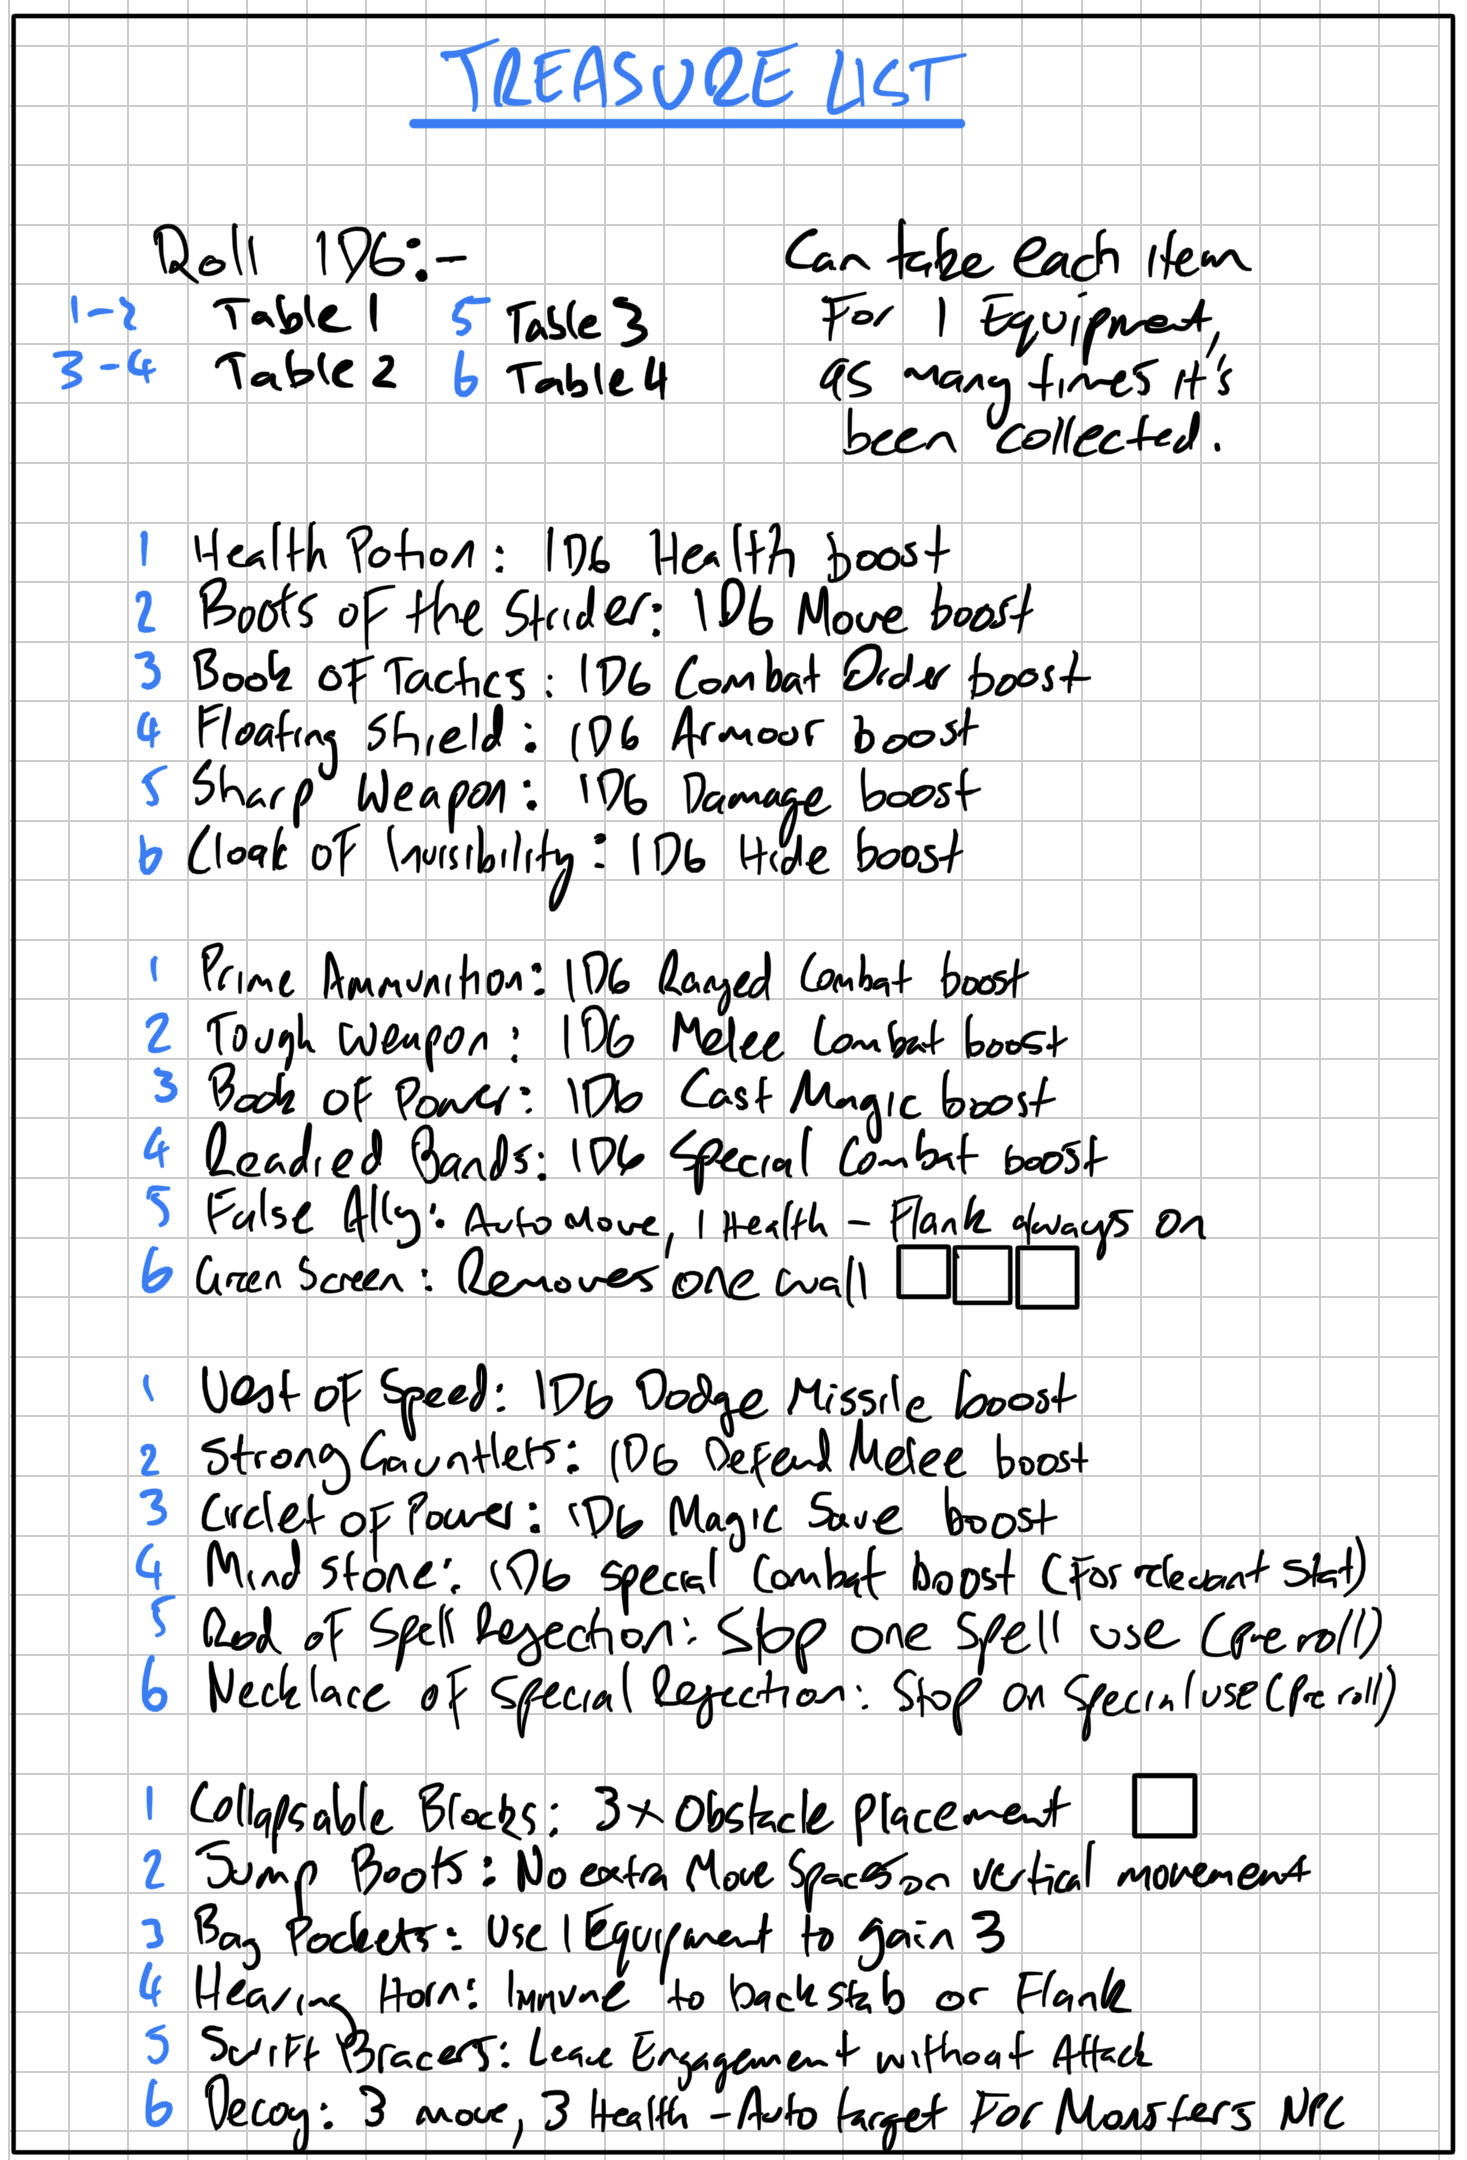 TREASURE LIST
Roll 1D6:-
1-2 Table 1 5 Table 3
3-4 Table 2 6 Table 4
Can take each item
For 1 Equipment,
as many times it's
been collected.
1 Health Potion: 1D6 Health boost
2 Boots of the Strider: 1D6 Move boost
3 Book of Tactics: 1D6 Combat Order boost
4 Floating Shield: 1D6 Armour boost
5 Sharp Weapon: 1D6 Damage boost
6 Cloak of Invisibility: 1D6 Hide boost
1 Prime Ammunition: 1D6 Ranged Combat boost
2 Tough Weapon: 1D6 Melee Combat boost
3 Book of Power: 1D6 Cast Magic boost
4 Readied Bands: 1D6 Special Combat boost
5 False Ally: Auto Move, 1 Health - Flank always on
6 Green Screen: Removes one wall
1 Vest of Speed: 1D6 Dodge Missile boost
2 Strong Gauntlets: 1D6 Defend Melee boost
3 Circlet of Power: 1D6 Magic Save boost
4 Mind stone: 1D6 special Combat boost (For relevant stat)
5 Rod of Spell Rejection: Stop one spell use (pre roll)
6 Necklace of Special Rejection: Stop on Special use (Pre roll)
1 Collapsable Blocks: 3x Obstacle placement
2 Jump Boots: No extra Move Spaces on vertical movement
3 Bag Pockets: Use 1 Equipment to gain 3
4 Hearing Horn: Immune to backstab or Flank
5 Swift Bracers: Leave Engagement without Attack
6 Decoy: 3 move, 3 Health - Auto target For Monsters NPC